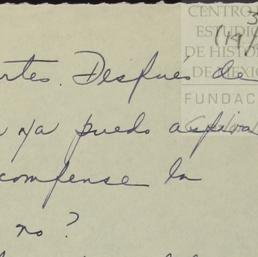 CENTRO
ESTUDI
DE HISTO
DE MEXIC
FUNDAC
3
(19)
rtes. Después de
ya puedo aspira
compense la
no?